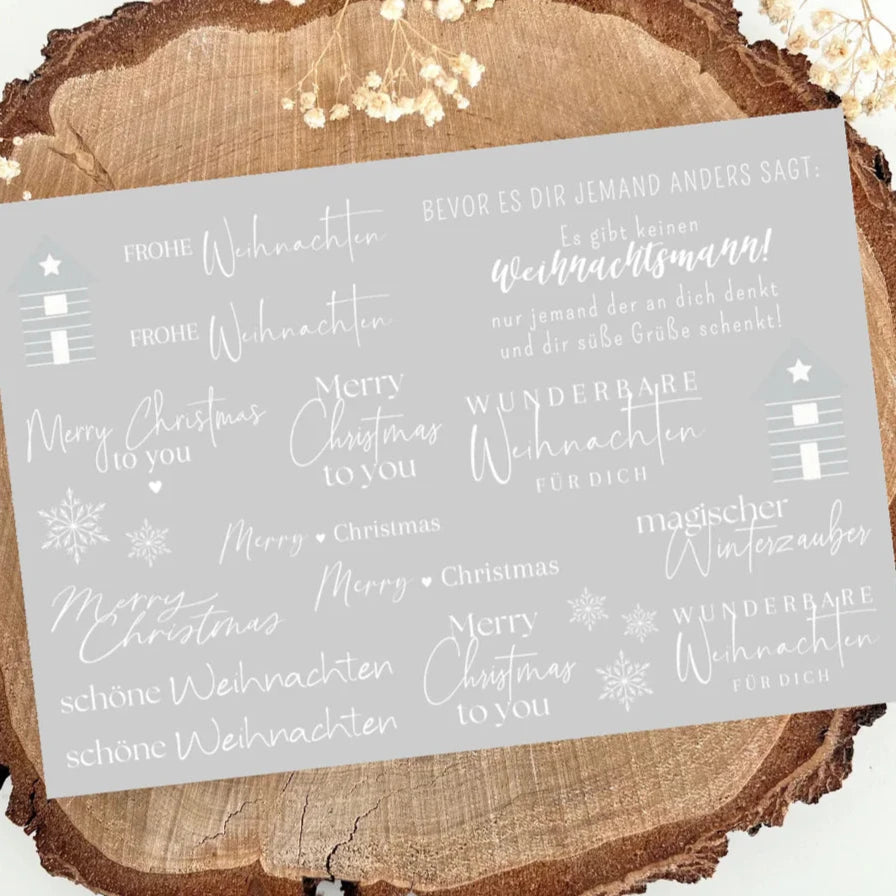 FROHE Weihnachten
FROHE Weihnachten
BEVOR ES DIR JEMAND ANDERS SAGT:
Es gibt keinen
Weihnachtsmann!
nur jemand der an dich denkt
und dir süße Grüße schenkt!
Merry Christmas
to you
Merry
Christmas
to you
WUNDERBARE
Weihnachten
FÜR DICH
Merry ♥ Christmas
Merry ♥ Christmas
magischer
Winterzauber
Merry
Christmas
schöne Weihnachten
schöne Weihnachten
Merry
Christmas
to you
WUNDERBARE
Weihnachten
FÜR DICH